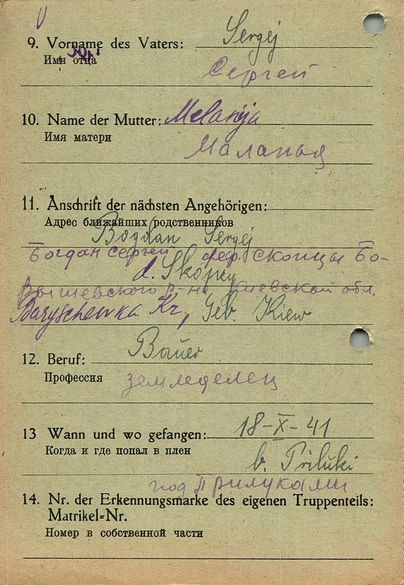 9. Vorname des Vaters: Sergej
Имя отца
Сергей
10. Name der Mutter: Melanija
Имя матери
Маланья
11. Anschrift der nächsten Angehörigen:
Адрес ближайших родственников
Bogdan Sergej
Богдан Сергей дер. Скопцы Бо-
d. Skopzy
рышевского р-на Киевской обл.
Baryschewka Kr, Geb. Kiew
12. Beruf: Bauer
Профессия земледелец
13 Wann und wo gefangen: 18-X-41
Когда и где попал в плен
b. Priluki
под Прилуками
14. Nr. der Erkennungsmarke des eigenen Truppenteils:
Matrikel-Nr.
Номер в собственной части